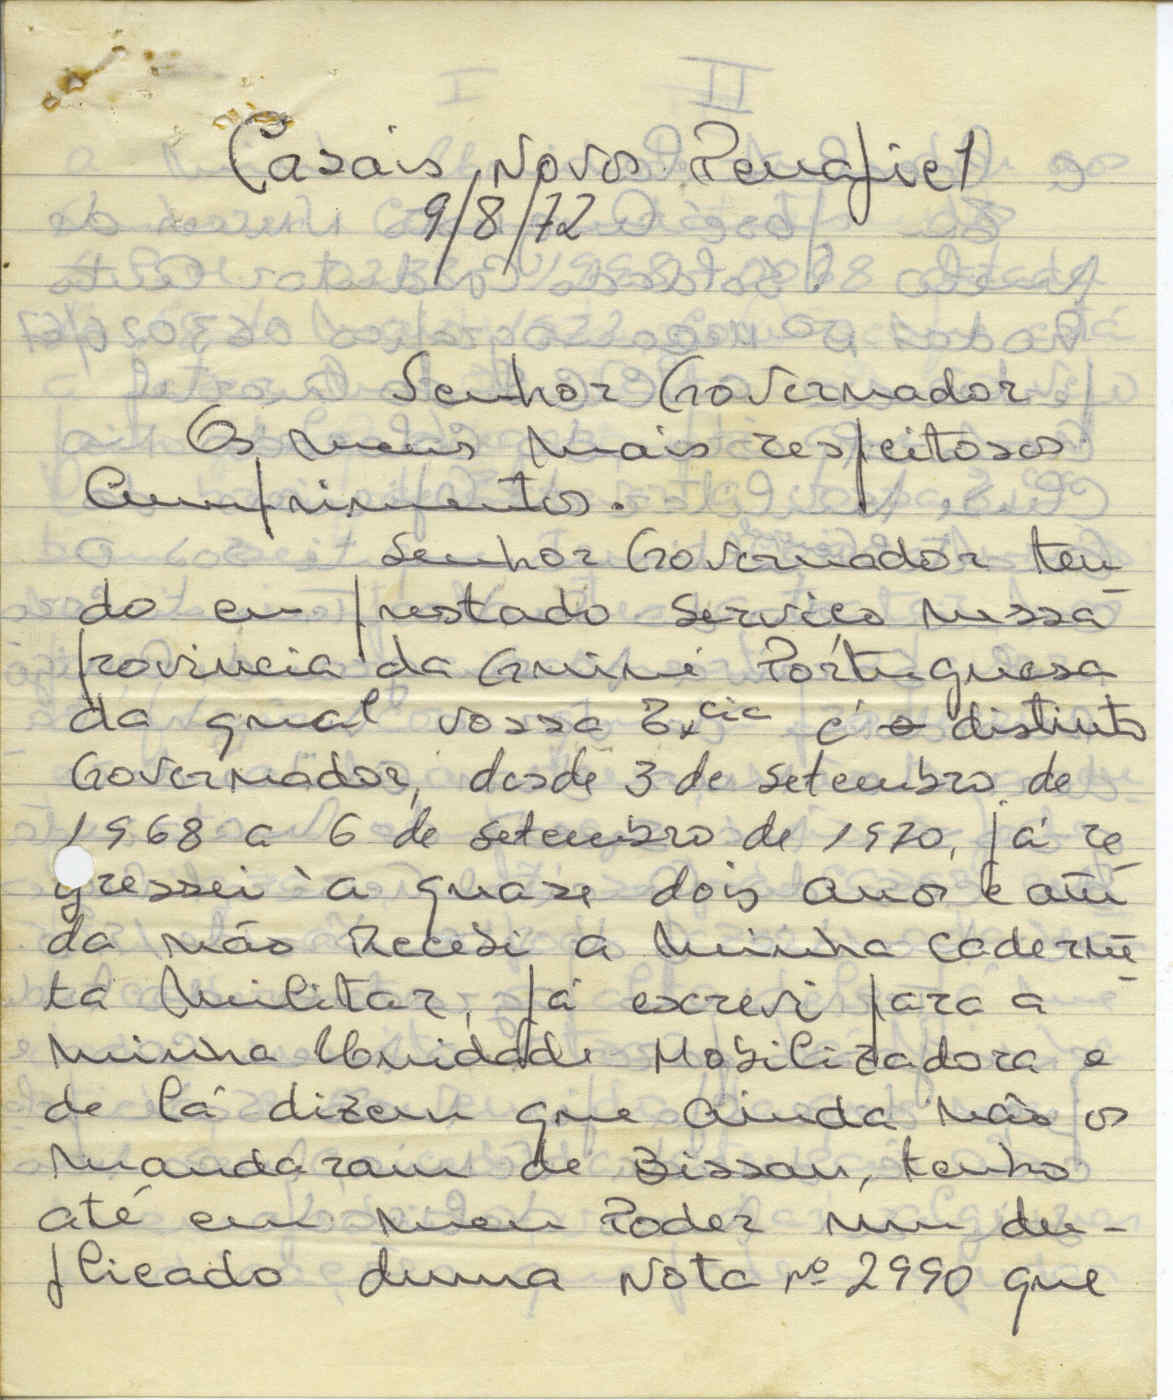 Casais Novos Penafiel
9/8/72
Senhor Governador
Os meus mais respeitosos
Cumprimentos.
Senhor Governador ten-
do eu prestado serviço nessa
provincia da Guiné Pórtuguesa
da qual vossa Excia é o distinto
Governador, desde 3 de setembro de
1968 a 6 de setembro de 1970, já re
gressei à quase dois anos e ain
da não Recebi a minha caderne-
ta Militar, já escrevi para a
minha Unidade Mobilizadora e
de lá dizem que ainda não os
mandaram de Bissau, tenho
até em meu Poder um du-
plicado duma Nota nº 2990 que